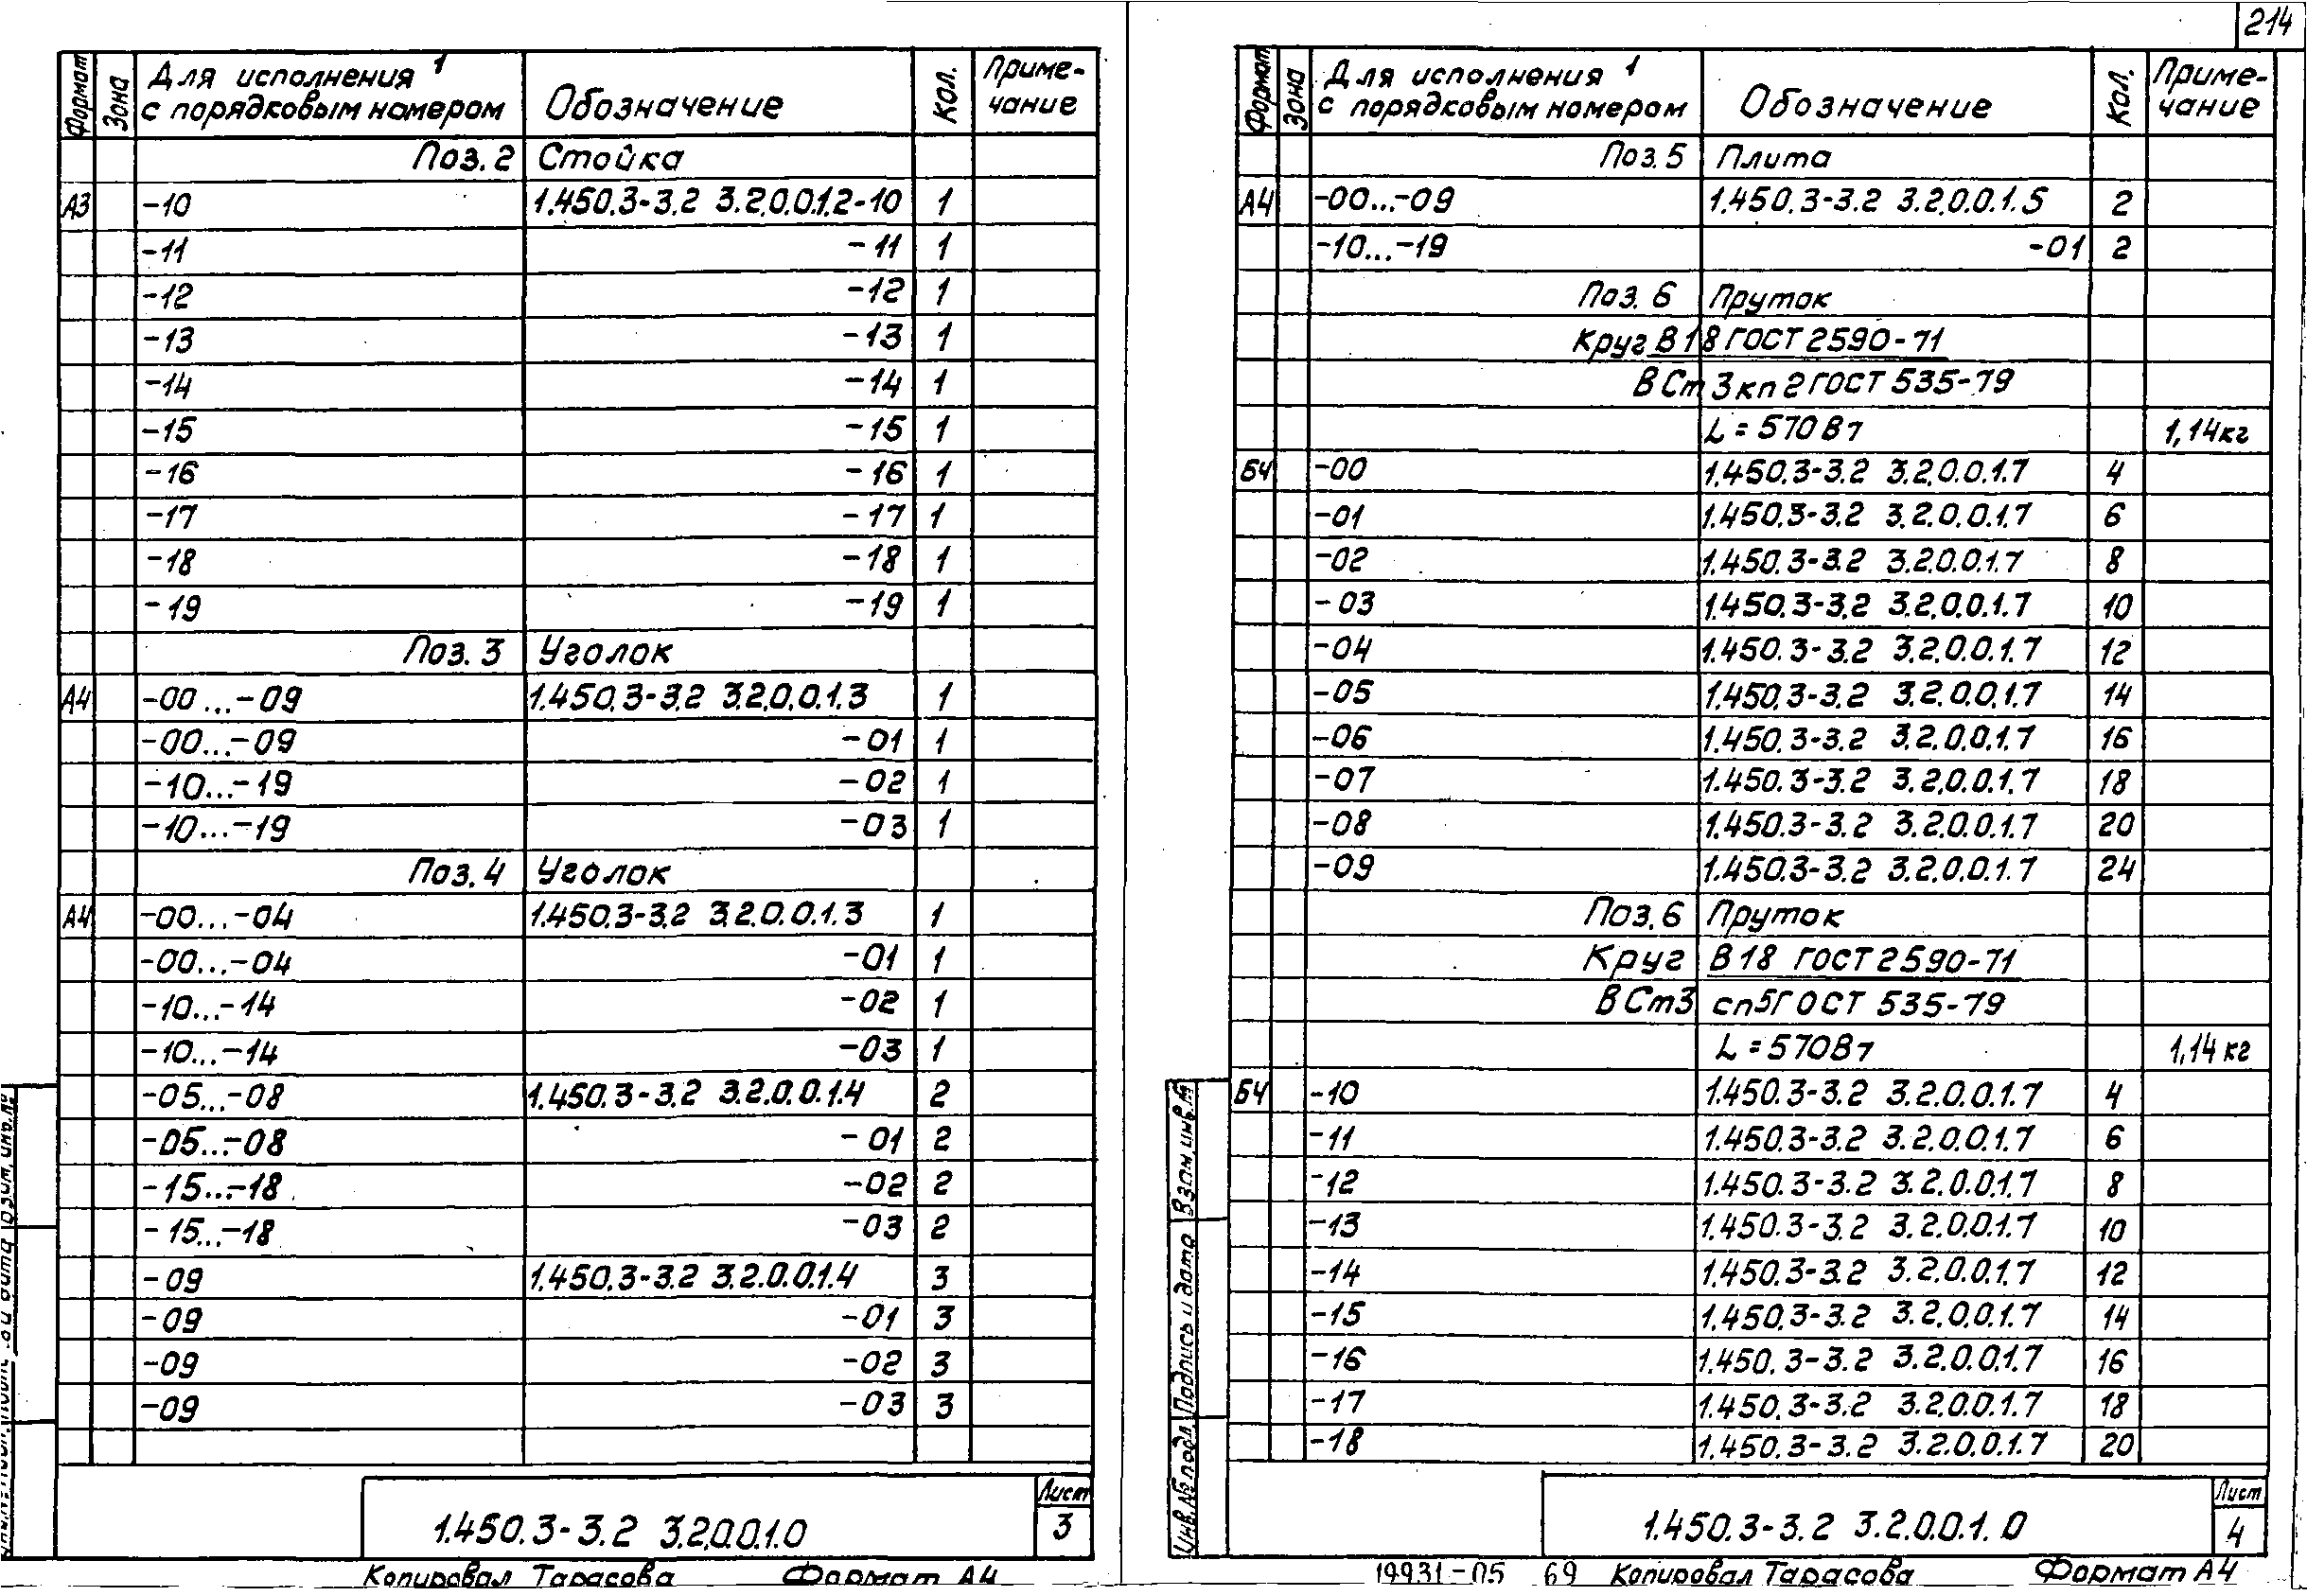 214
Формат Зона Для исполнения 1 с порядковым номером Обозначение Кол. Приме-чание
Поз. 2 Стойка
А3 -10 1.450.3-3.2 3.2.0.0.1.2-10 1
-11 -11 1
-12 -12 1
-13 -13 1
-14 -14 1
-15 -15 1
-16 -16 1
-17 -17 1
-18 -18 1
-19 -19 1
Поз. 3 Уголок
А4 -00...-09 1.450.3-3.2 3.2.0.0.1.3 1
-00...-09 -01 1
-10...-19 -02 1
-10...-19 -03 1
Поз. 4 Уголок
А4 -00...-04 1.450.3-3.2 3.2.0.0.1.3 1
-00...-04 -01 1
-10...-14 -02 1
-10...-14 -03 1
-05...-08 1.450.3-3.2 3.2.0.0.1.4 2
-05...-08 -01 2
-15...-18 -02 2
-15...-18 -03 2
-09 1.450.3-3.2 3.2.0.0.1.4 3
-09 -01 3
-09 -02 3
-09 -03 3
1.450.3-3.2 3.2.0.0.1.0
Лист
3
Копировал Тарасова Формат А4
Формат Зона Для исполнения 1 с порядковым номером Обозначение Кол. Приме-чание
Поз. 5 Плита
А4 -00...-09 1.450.3-3.2 3.2.0.0.1.5 2
-10...-19 -01 2
Поз. 6 Пруток
Круг В18 ГОСТ 2590-71
ВСт 3кп2 ГОСТ 535-79
L = 570Вт 1,14кг
БЧ -00 1.450.3-3.2 3.2.0.0.1.7 4
-01 1.450.3-3.2 3.2.0.0.1.7 6
-02 1.450.3-3.2 3.2.0.0.1.7 8
-03 1.450.3-3.2 3.2.0.0.1.7 10
-04 1.450.3-3.2 3.2.0.0.1.7 12
-05 1.450.3-3.2 3.2.0.0.1.7 14
-06 1.450.3-3.2 3.2.0.0.1.7 16
-07 1.450.3-3.2 3.2.0.0.1.7 18
-08 1.450.3-3.2 3.2.0.0.1.7 20
-09 1.450.3-3.2 3.2.0.0.1.7 24
Поз. 6 Пруток
Круг В18 ГОСТ 2590-71
ВСт3 сп5 ГОСТ 535-79
L = 570Вт 1,14 кг
БЧ -10 1.450.3-3.2 3.2.0.0.1.7 4
-11 1.450.3-3.2 3.2.0.0.1.7 6
-12 1.450.3-3.2 3.2.0.0.1.7 8
-13 1.450.3-3.2 3.2.0.0.1.7 10
-14 1.450.3-3.2 3.2.0.0.1.7 12
-15 1.450.3-3.2 3.2.0.0.1.7 14
-16 1.450.3-3.2 3.2.0.0.1.7 16
-17 1.450.3-3.2 3.2.0.0.1.7 18
-18 1.450.3-3.2 3.2.0.0.1.7 20
Инв.№ подл. Подпись и дата Взам.инв.№
1.450.3-3.2 3.2.0.0.1.0
Лист
4
19931-05 69 Копировал Тарасова Формат А4